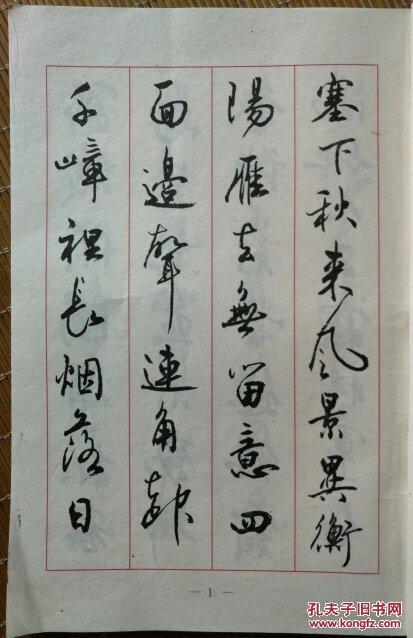 塞下秋来风景異衡
陽雁去無留意四
面邊聲連角起
千嶂裡長烟落日
— 1 —
孔夫子旧书网
www.kongfz.com